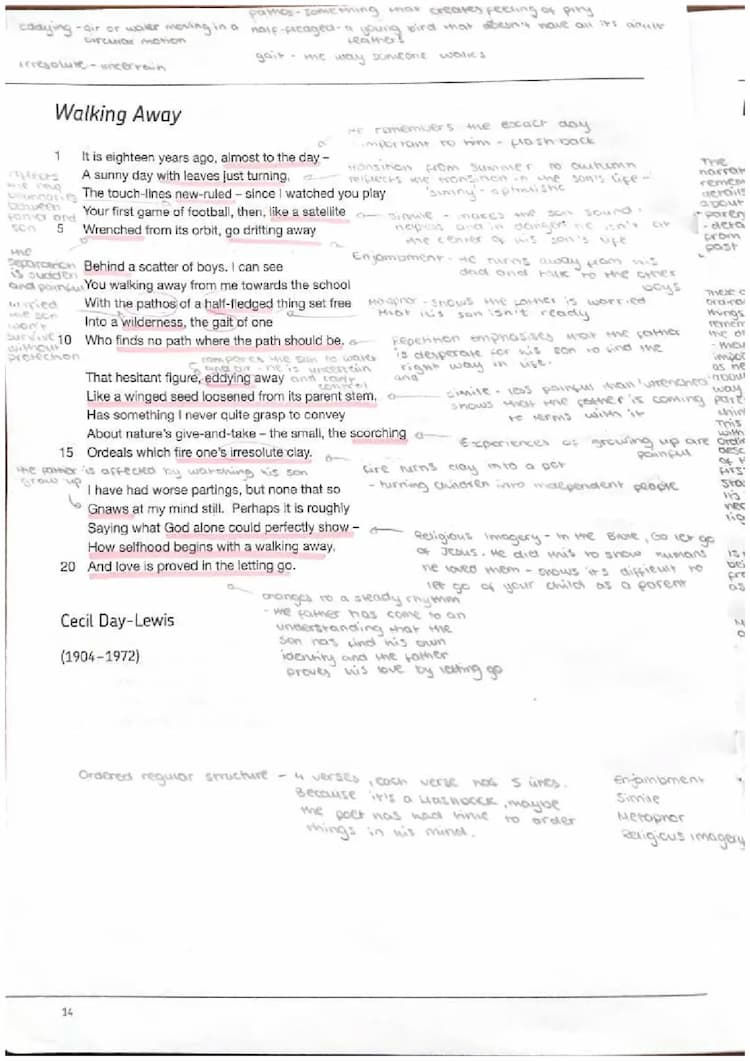 pathos - something that creates feeling of pity
eddying - air or water moving in a circular motion
half-fledged - a young bird that doesn't have all its adult feathers
irresolute - uncertain
gait - the way someone walks
Walking Away
He remembers the exact day
important to him - flash back
1 It is eighteen years ago, almost to the day –
A sunny day with leaves just turning,
The touch-lines new-ruled – since I watched you play
Your first game of football, then, like a satellite
5 Wrenched from its orbit, go drifting away
transition from summer to autumn
reflects the transition in the son's life -
'sunny' - optimistic
reflects
the new
boundaries
between
father and
son
simile - makes the son sound
helpless and in danger. he isn't at
the center of his son's life
Enjambment - He turns away from his
dad and talk to the other
boys
the
separation
is sudden
and painful
Behind a scatter of boys. I can see
You walking away from me towards the school
With the pathos of a half-fledged thing set free
Into a wilderness, the gait of one
10 Who finds no path where the path should be.
worried
the son
won't
survive
without
protection
Metaphor - shows the father is worried
that his son isn't ready
Repetition emphasises that the father
is desperate for his son to find the
right way in life.
compares the son to water
and air - he is uncertain
and can't
control
That hesitant figure, eddying away
Like a winged seed loosened from its parent stem,
Has something I never quite grasp to convey
About nature's give-and-take – the small, the scorching
15 Ordeals which fire one's irresolute clay.
simile - less painful than 'wrenched'
shows that the father is coming
to terms with it
Experiences of growing up are
painful
fire turns clay into a pot
- turning children into independent people
the father is affected by watching his son
grow up
I have had worse partings, but none that so
Gnaws at my mind still. Perhaps it is roughly
Saying what God alone could perfectly show –
How selfhood begins with a walking away,
20 And love is proved in the letting go.
Religious imagery - In the Bible, God let go
of Jesus. He did this to show humans
he loved them - shows it's difficult to
let go of your child as a parent
changes to a steady rhythm
- the father has come to an
understanding that the
son has find his own
identity and the father
proves his love by letting go
Cecil Day-Lewis
(1904–1972)
Ordered regular structure - 4 verses, each verse has 5 lines.
Because it's a flashback, maybe
the poet has had time to order
things in his mind.
Enjambment
Simile
Metaphor
Religious imagery
14